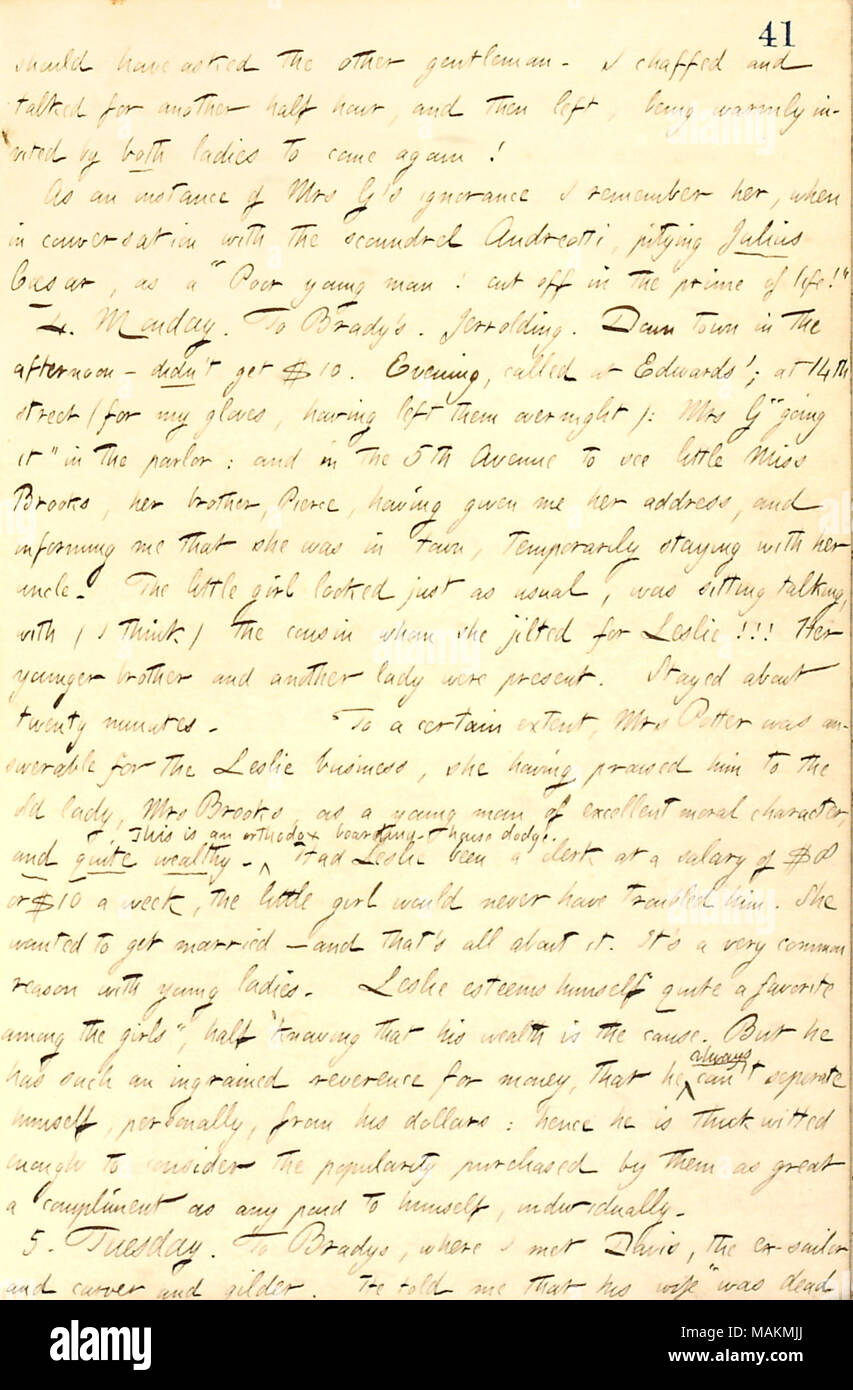 41
should have asked the other gentleman. I chaffed and
talked for another half hour, and then left, being warmly in-
vited by both ladies to come again!
As an instance of Mrs G's ignorance I remember her, when
in conversation with the scoundrel Andreotti, pitying Julius
Cæsar, as a "Poor young man! cut off in the prime of life!"
4. Monday. To Brady's. Jerrolding. Down town in the
afternoon — didn't get $10. Evening, called at Edwards'; at 14th
street (for my gloves, having left them overnight): Mrs G "going
it" in the parlor: and in the 5th Avenue to see little Miss
Brooks, her brother, Pierce, having given me her address, and
informing me that she was in town, temporarily staying with her
uncle. The little girl looked just as usual, was sitting talking,
with (I think) the cousin whom she jilted for Leslie!!! Her
younger brother and another lady were present. Stayed about
twenty minutes. To a certain extent, Mrs Potter was an-
swerable for the Leslie business, she having praised him to the
old lady, Mrs Brooks, as a young man of excellent moral character,
This is an orthodox boarding-house dodge.
and quite wealthy. ^ Had Leslie been a clerk at a salary of $8
or $10 a week, the little girl would never have troubled him. She
wanted to get married — and that's all about it. It's a very common
reason with young ladies. Leslie esteems himself quite a favorite
among the girls", half knowing that his wealth is the cause. But he
always
has such an ingrained reverence for money, that he ^ can't seperate
himself, personally, from his dollars: hence he is thick witted
enough to consider the popularity purchased by them as great
a compliment as any paid to himself, individually.
5. Tuesday. To Bradys, where I met Davis, the ex-sailor
and carver and gilder. He told me that his wife "was dead
alamy
Image ID: MAKMJJ
www.alamy.com